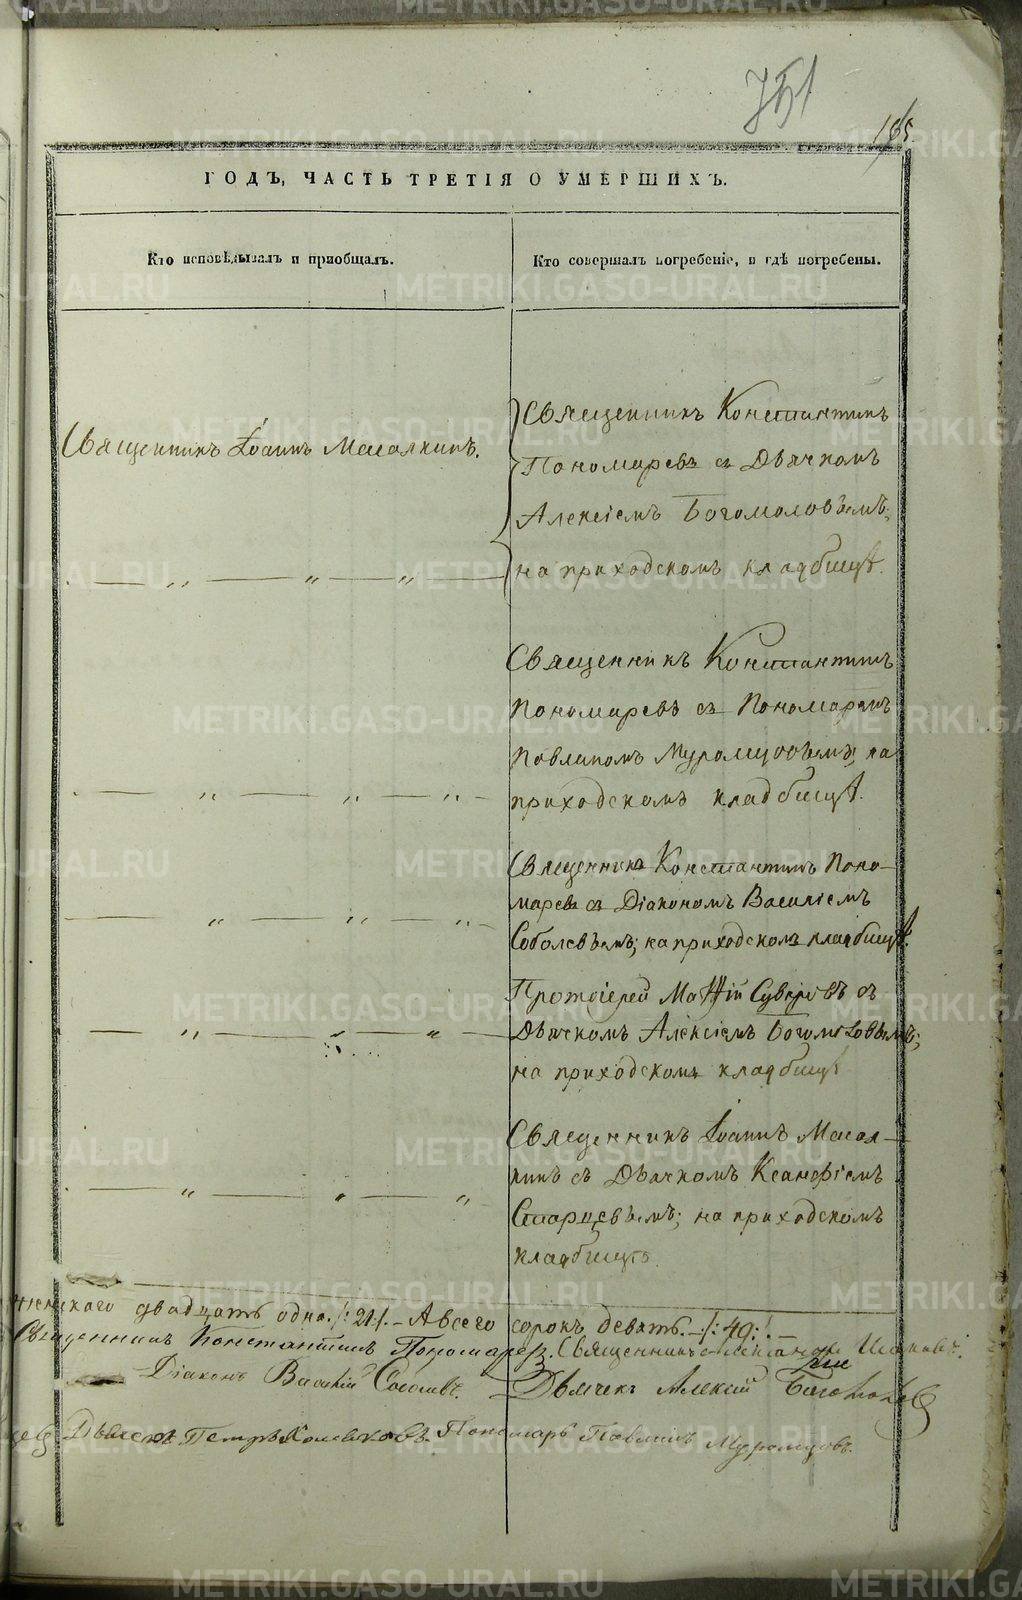 751
185
ГОДЪ, ЧАСТЬ ТРЕТІЯ О УМЕРШИХЪ.
Кто исповѣдывалъ и пріобщалъ.
Кто совершалъ погребеніе, и гдѣ погребены.
Священникъ Іоаннъ Масалкинъ.
Священникъ Константинъ
Пономаревъ съ Дьячкомъ
Алексіемъ Богомоловымъ;
на приходскомъ кладбищѣ.
Священникъ Константинъ
Пономаревъ съ Пономаремъ
Павлиномъ Муромцовымъ; на
приходскомъ кладбищѣ.
Священникъ Константинъ Поно-
маревъ съ Діакономъ Василіемъ
Соболевымъ; на приходскомъ кладбищѣ.
Протоіерей Матѳій Суворовъ съ
Дьячкомъ Алексіемъ Богомоловымъ;
на приходскомъ кладбищѣ
Священникъ Іоаннъ Масал-
кинъ съ Дьячкомъ Ксанофіемъ
Старцевымъ; на приходскомъ
кладбищѣ.
женскаго двадцать одна /:21:/. - А всего сорокъ девять. - /:49:/. -
Священникъ Константинъ Пономаревъ. Священникъ
Діаконъ Василій Соболевъ. Дьячекъ Алексій Богомоловъ
Дьячекъ Петръ Пономарь Павлинъ Муромцовъ.
METRIKI.GASO-URAL.RU